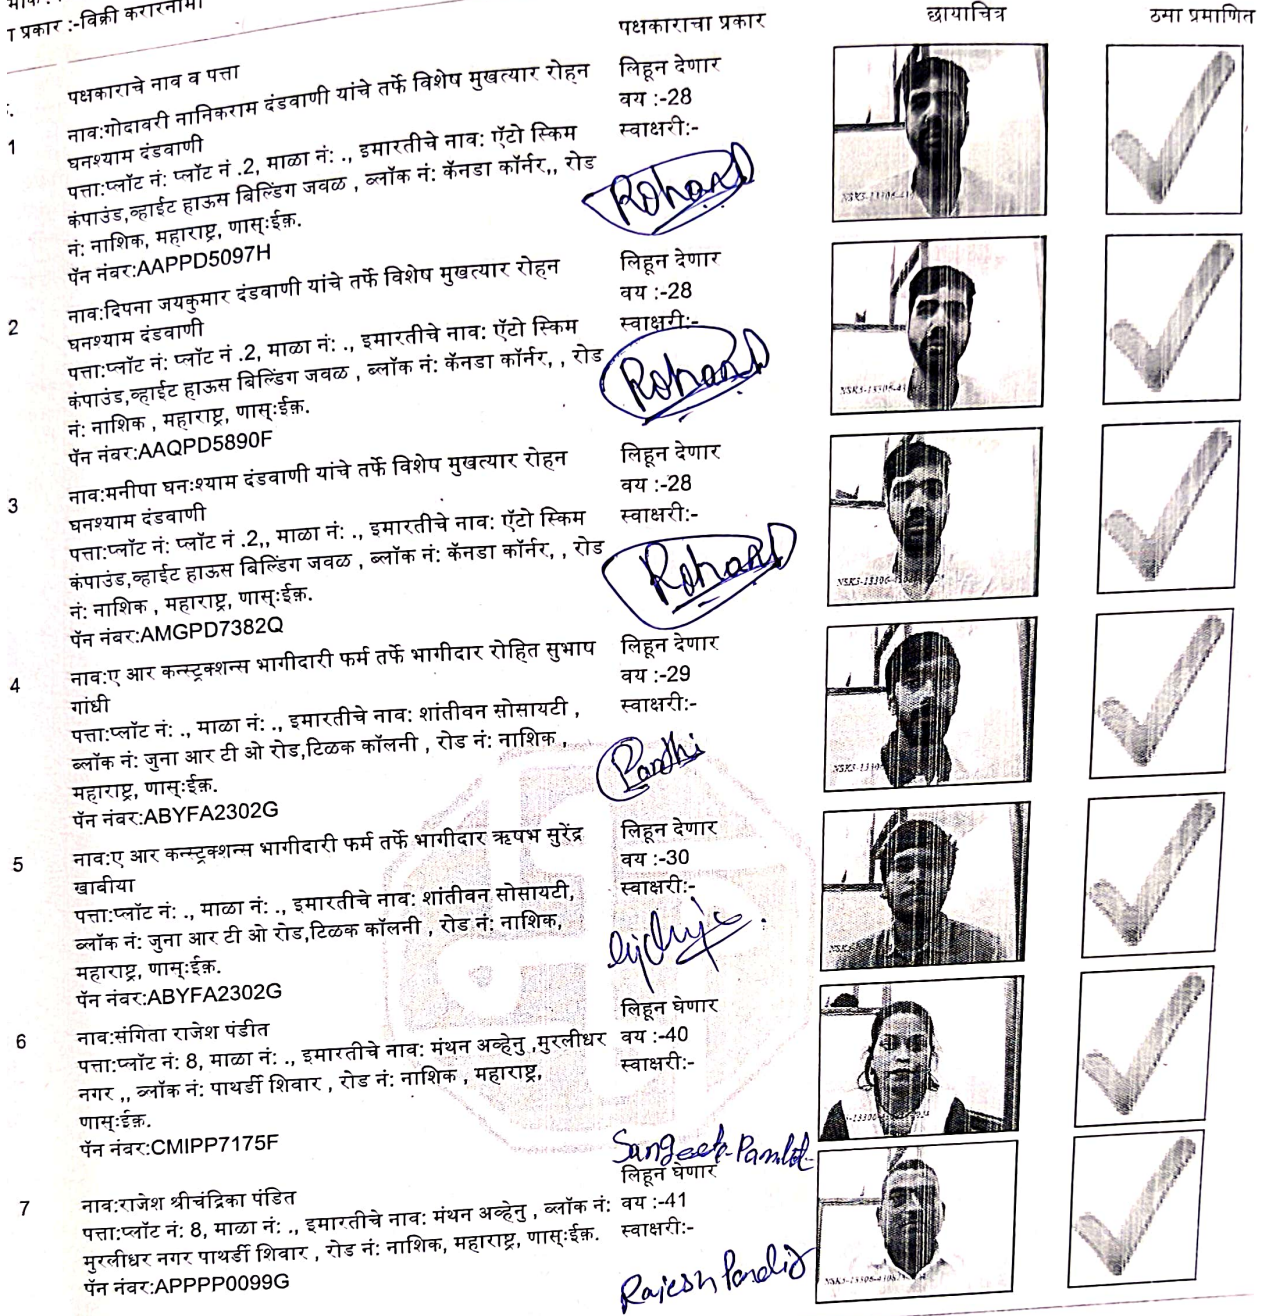 प्रकार :-विक्री करारनामा
पक्षकाराचे नाव व पत्ता
पक्षकाराचा प्रकार
छायाचित्र
ठमा प्रमाणित
1
नाव:गोदावरी नानिकराम दंडवाणी यांचे तर्फे विशेष मुखत्यार रोहन
घनश्याम दंडवाणी
पत्ता:प्लॉट नं: प्लॉट नं .2, माळा नं: ., इमारतीचे नाव: ऍटो स्किम
कंपाउंड,व्हाईट हाऊस बिल्डिंग जवळ , ब्लॉक नं: कॅनडा कॉर्नर,, रोड
नं: नाशिक, महाराष्ट्र, णास्ःईक़.
पॅन नंबर:AAPPD5097H
लिहून देणार
वय :-28
स्वाक्षरी:-
RohanD
2
नाव:दिपना जयकुमार दंडवाणी यांचे तर्फे विशेष मुखत्यार रोहन
घनश्याम दंडवाणी
पत्ता:प्लॉट नं: प्लॉट नं .2, माळा नं: ., इमारतीचे नाव: ऍटो स्किम
कंपाउंड,व्हाईट हाऊस बिल्डिंग जवळ , ब्लॉक नं: कॅनडा कॉर्नर, , रोड
नं: नाशिक , महाराष्ट्र, णास्ःईक़.
पॅन नंबर:AAQPD5890F
लिहून देणार
वय :-28
स्वाक्षरी:-
RohanD
3
नाव:मनीषा घनःश्याम दंडवाणी यांचे तर्फे विशेष मुखत्यार रोहन
घनश्याम दंडवाणी
पत्ता:प्लॉट नं: प्लॉट नं .2,, माळा नं: ., इमारतीचे नाव: ऍटो स्किम
कंपाउंड,व्हाईट हाऊस बिल्डिंग जवळ , ब्लॉक नं: कॅनडा कॉर्नर, , रोड
नं: नाशिक , महाराष्ट्र, णास्ःईक़.
पॅन नंबर:AMGPD7382Q
लिहून देणार
वय :-28
स्वाक्षरी:-
RohanD
4
नाव:ए आर कन्स्ट्रक्शन्स भागीदारी फर्म तर्फे भागीदार रोहित सुभाष
गांधी
पत्ता:प्लॉट नं: ., माळा नं: ., इमारतीचे नाव: शांतीवन सोसायटी ,
ब्लॉक नं: जुना आर टी ओ रोड,टिळक कॉलनी , रोड नं: नाशिक ,
महाराष्ट्र, णास्ःईक़.
पॅन नंबर:ABYFA2302G
लिहून देणार
वय :-29
स्वाक्षरी:-
5
नाव:ए आर कन्स्ट्रक्शन्स भागीदारी फर्म तर्फे भागीदार ऋषभ सुरेंद्र
खाबीया
पत्ता:प्लॉट नं: ., माळा नं: ., इमारतीचे नाव: शांतीवन सोसायटी,
ब्लॉक नं: जुना आर टी ओ रोड,टिळक कॉलनी , रोड नं: नाशिक,
महाराष्ट्र, णास्ःईक़.
पॅन नंबर:ABYFA2302G
लिहून देणार
वय :-30
स्वाक्षरी:-
6
नाव:संगिता राजेश पंडीत
पत्ता:प्लॉट नं: 8, माळा नं: ., इमारतीचे नाव: मंथन अव्हेनु ,मुरलीधर
नगर ,, ब्लॉक नं: पाथर्डी शिवार , रोड नं: नाशिक , महाराष्ट्र,
णास्ःईक़.
पॅन नंबर:CMIPP7175F
लिहून घेणार
वय :-40
स्वाक्षरी:-
Sangeeta Pandit
7
नाव:राजेश श्रीचंद्रिका पंडित
पत्ता:प्लॉट नं: 8, माळा नं: ., इमारतीचे नाव: मंथन अव्हेनु , ब्लॉक नं:
मुरलीधर नगर पाथर्डी शिवार , रोड नं: नाशिक, महाराष्ट्र, णास्ःईक़.
पॅन नंबर:APPPP0099G
लिहून घेणार
वय :-41
स्वाक्षरी:-
Rajesh Pandit